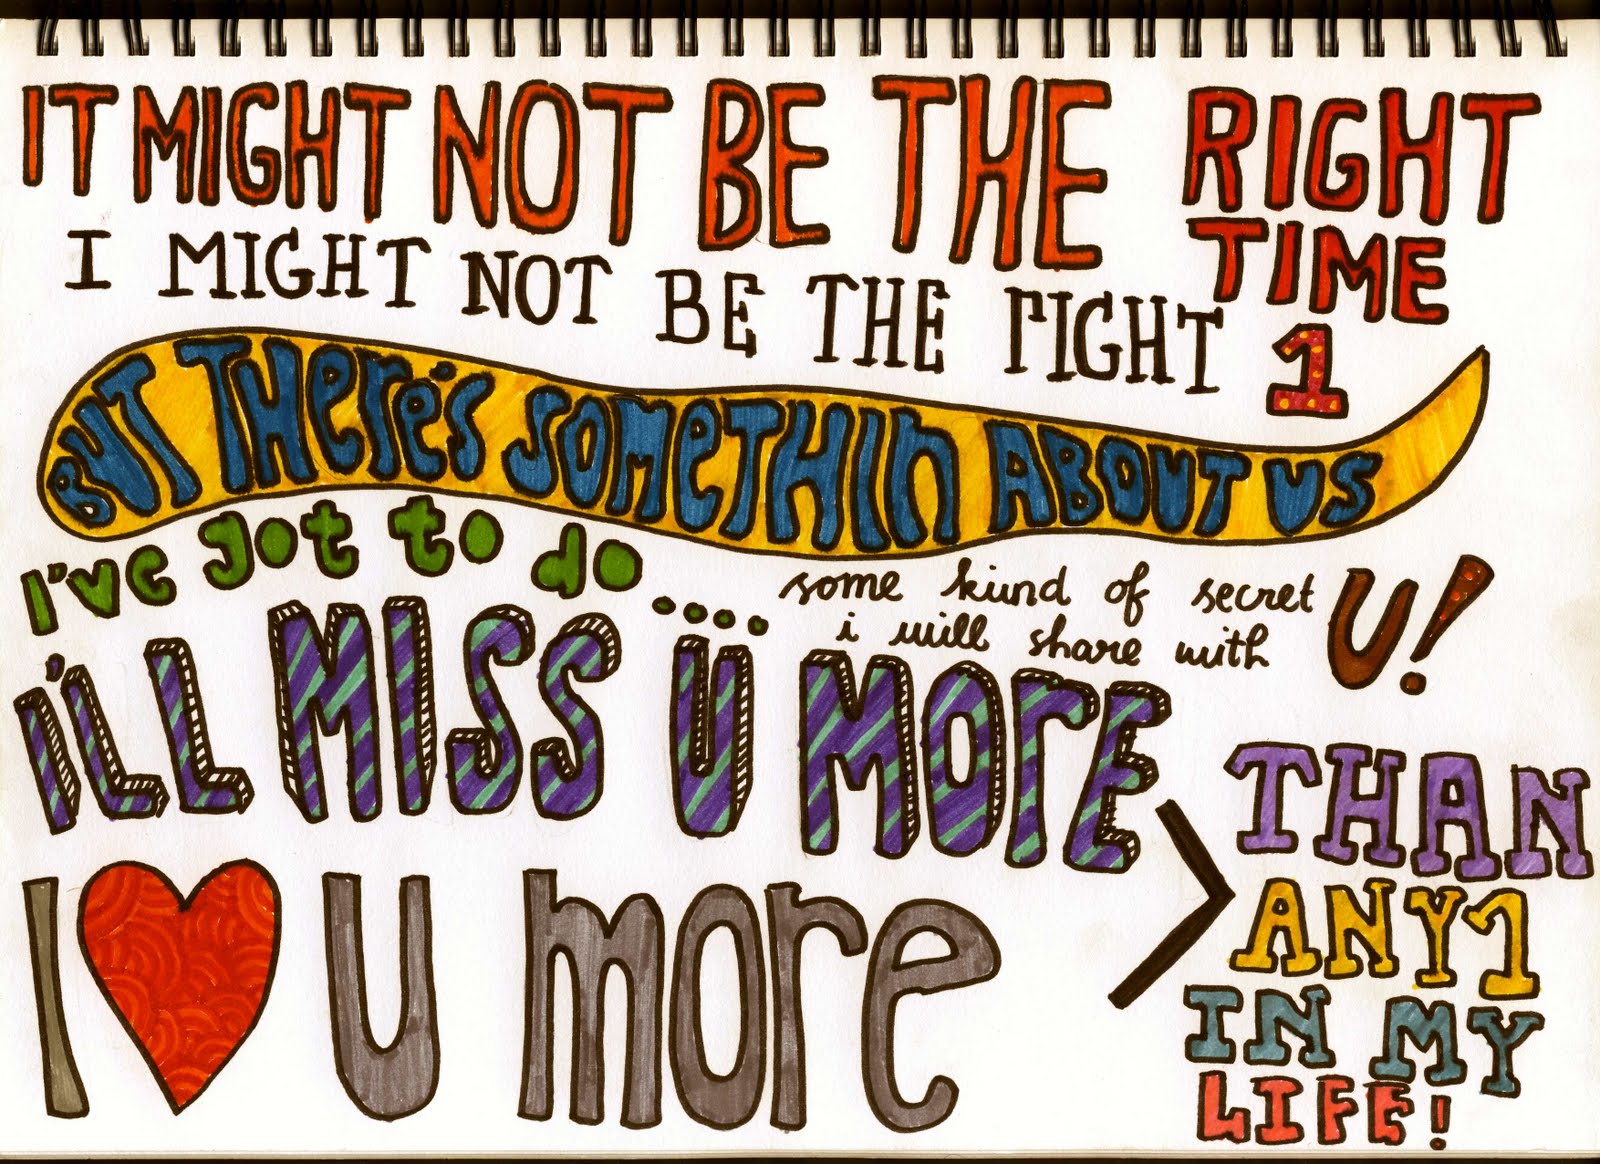 IT MIGHT NOT BE THE RIGHT TIME
I MIGHT NOT BE THE rIGHT 1
BUT THere's SOMeTHIn ABOUT US
I've got to do....
some kind of secret
i will share with U!
i'LL MISS U MOrE
I ❤ U more
> THAN
ANY1
IN MY
LIFE!